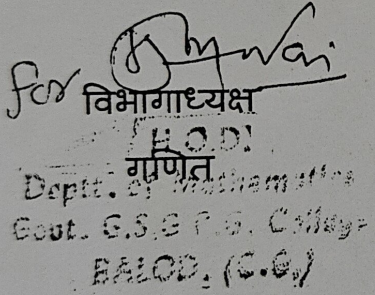 for
विभागाध्यक्ष
H.O.D.
गणित
Deptt. of Mathematics
Govt. G.S.G P.G. College
BALOD. (C.G.)